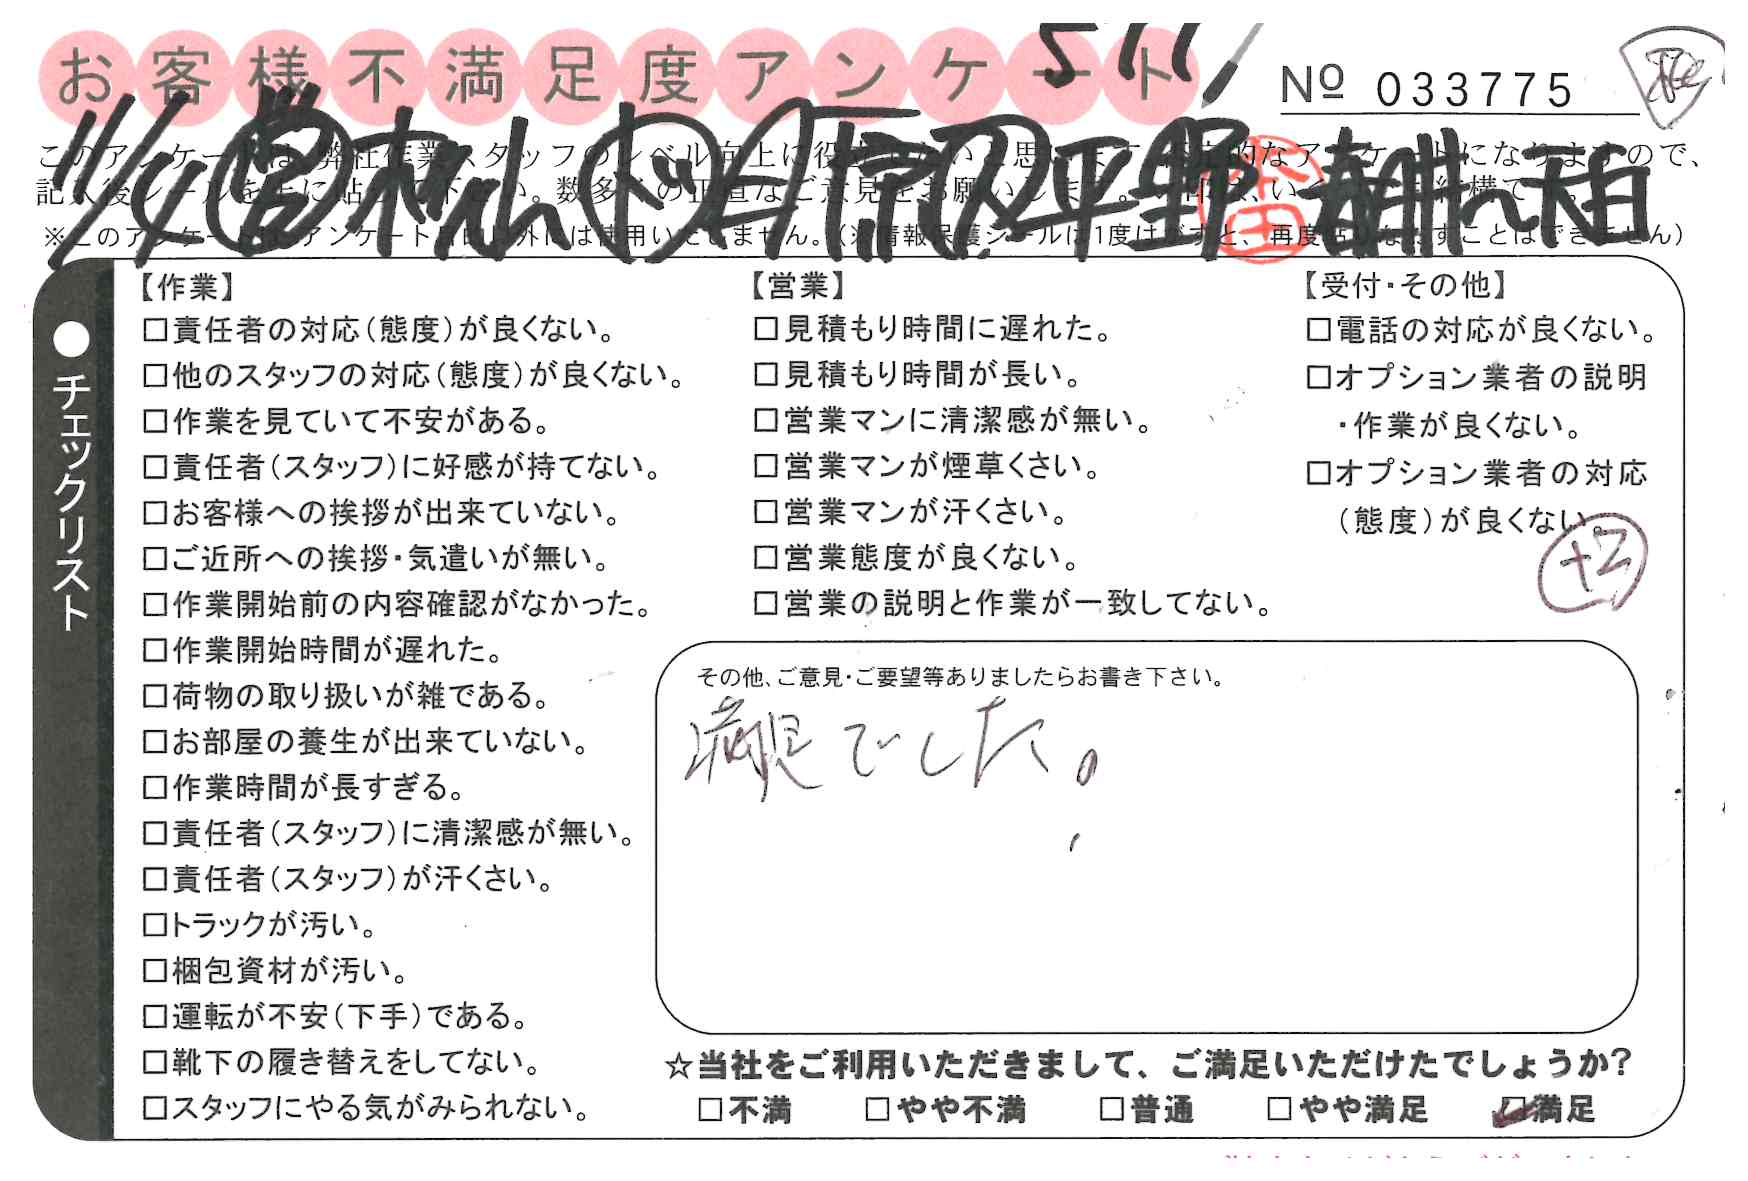 お客様不満足度アンケート
511
Nº 033775
11/4 営
このアンケートは、弊社作業スタッフのレベル向上に役
記入後シールを上に貼って下さい。数多くの正直なご意見をお願いします。
※このアンケートは、アンケート目的以外には使用いたしません。(※情報保護シールは1度はがすと、再度貼りなおすことはできません)
●チェックリスト
【作業】
□責任者の対応(態度)が良くない。
□他のスタッフの対応(態度)が良くない。
□作業を見ていて不安がある。
□責任者(スタッフ)に好感が持てない。
□お客様への挨拶が出来ていない。
□ご近所への挨拶・気遣いが無い。
□作業開始前の内容確認がなかった。
□作業開始時間が遅れた。
□荷物の取り扱いが雑である。
□お部屋の養生が出来ていない。
□作業時間が長すぎる。
□責任者(スタッフ)に清潔感が無い。
□責任者(スタッフ)が汗くさい。
□トラックが汚い。
□梱包資材が汚い。
□運転が不安(下手)である。
□靴下の履き替えをしてない。
□スタッフにやる気がみられない。
【営業】
□見積もり時間に遅れた。
□見積もり時間が長い。
□営業マンに清潔感が無い。
□営業マンが煙草くさい。
□営業マンが汗くさい。
□営業態度が良くない。
□営業の説明と作業が一致してない。
【受付・その他】
□電話の対応が良くない。
□オプション業者の説明
・作業が良くない。
□オプション業者の対応
(態度)が良くない。
+2
その他、ご意見・ご要望等ありましたらお書き下さい。
満足でした。
☆当社をご利用いただきまして、ご満足いただけたでしょうか?
□不満 □やや不満 □普通 □やや満足 ☑満足